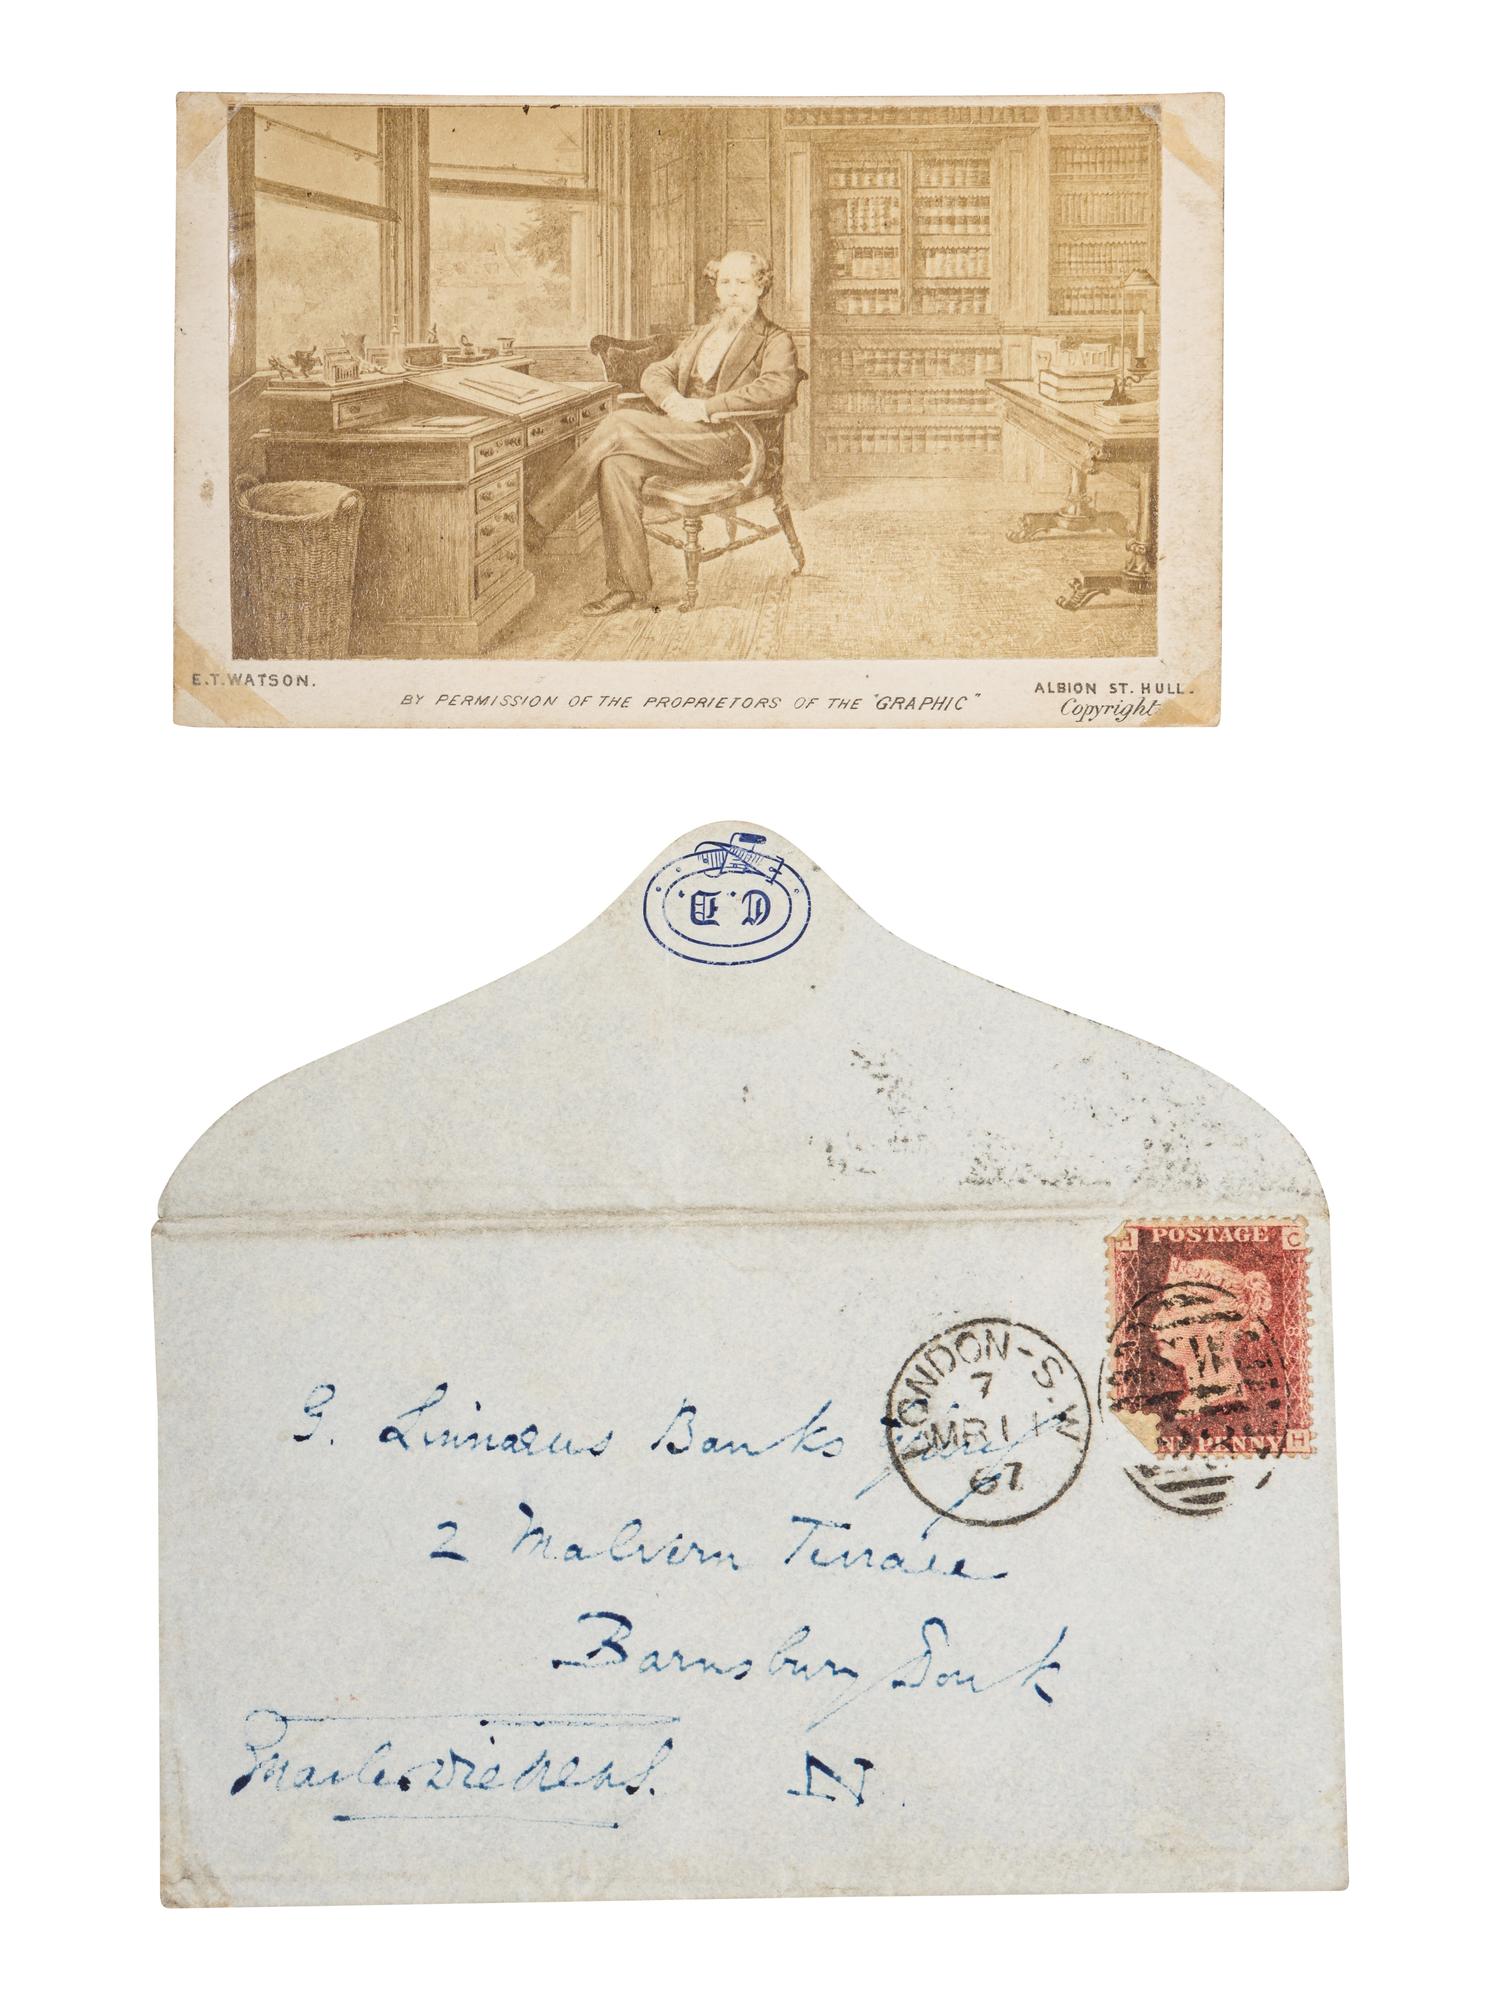 E.T. WATSON.
BY PERMISSION OF THE PROPRIETORS OF THE "GRAPHIC"
ALBION ST. HULL.
Copyright
C.D.
H POSTAGE C
PENNY H
LONDON-S.W
7
MR 11
67
G. Linnaeus Banks
2 Malvern Terrace
Barnsbury Park
N.
Charles Dickens.